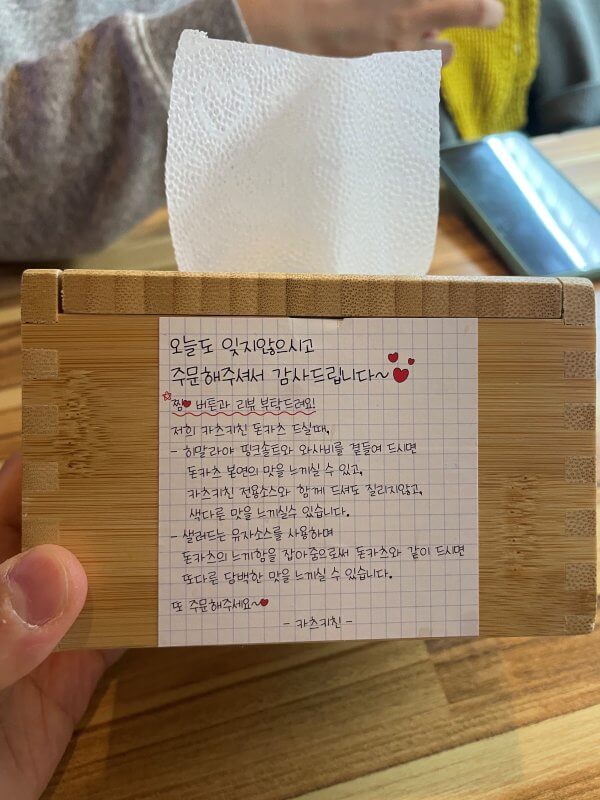 오늘도 잊지않으시고
주문해주셔서 감사드립니다~
찜 버튼과 리뷰 부탁드려요!
저희 카츠키친 돈카츠 드실때,
- 히말라야 핑크솔트와 와사비를 곁들여 드시면
돈카츠 본연의 맛을 느끼실 수 있고,
카츠키친 전용소스와 함께 드셔도 질리지않고,
색다른 맛을 느끼실수 있습니다.
- 샐러드는 유자소스를 사용하며
돈카츠의 느끼함을 잡아줌으로써 돈카츠와 같이 드시면
또다른 담백한 맛을 느끼실 수 있습니다.
또 주문해주세요~
- 카츠키친 -